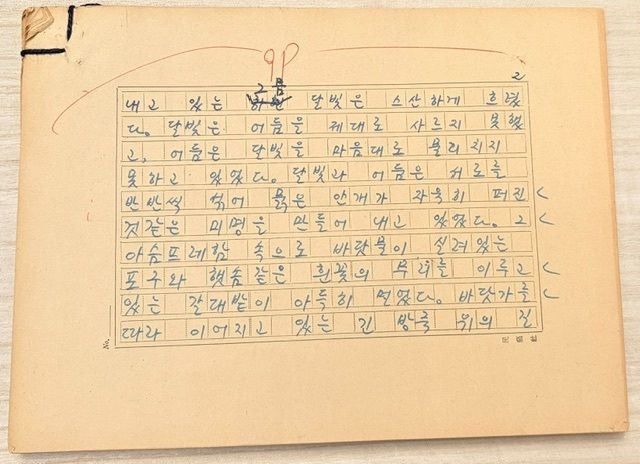 2
그믐
내고 있는 달빛은 스산하게 흐렸
다. 달빛은 어둠을 제대로 사르지 못했
고, 어둠은 달빛을 마음대로 물리치지
못하고 있었다. 달빛과 어둠은 서로를
반반씩 섞어 묽은 안개가 자욱히 퍼진
것같은 미명을 만들어 내고 있었다. 그
아슴프레함 속으로 바닷물이 실려있는
포구와 햇솜같은 흰꽃의 무리를 이루고
있는 갈대밭이 아득히 멀었다. 바닷가를
따라 이어지고 있는 긴 방죽 위의 길
No.